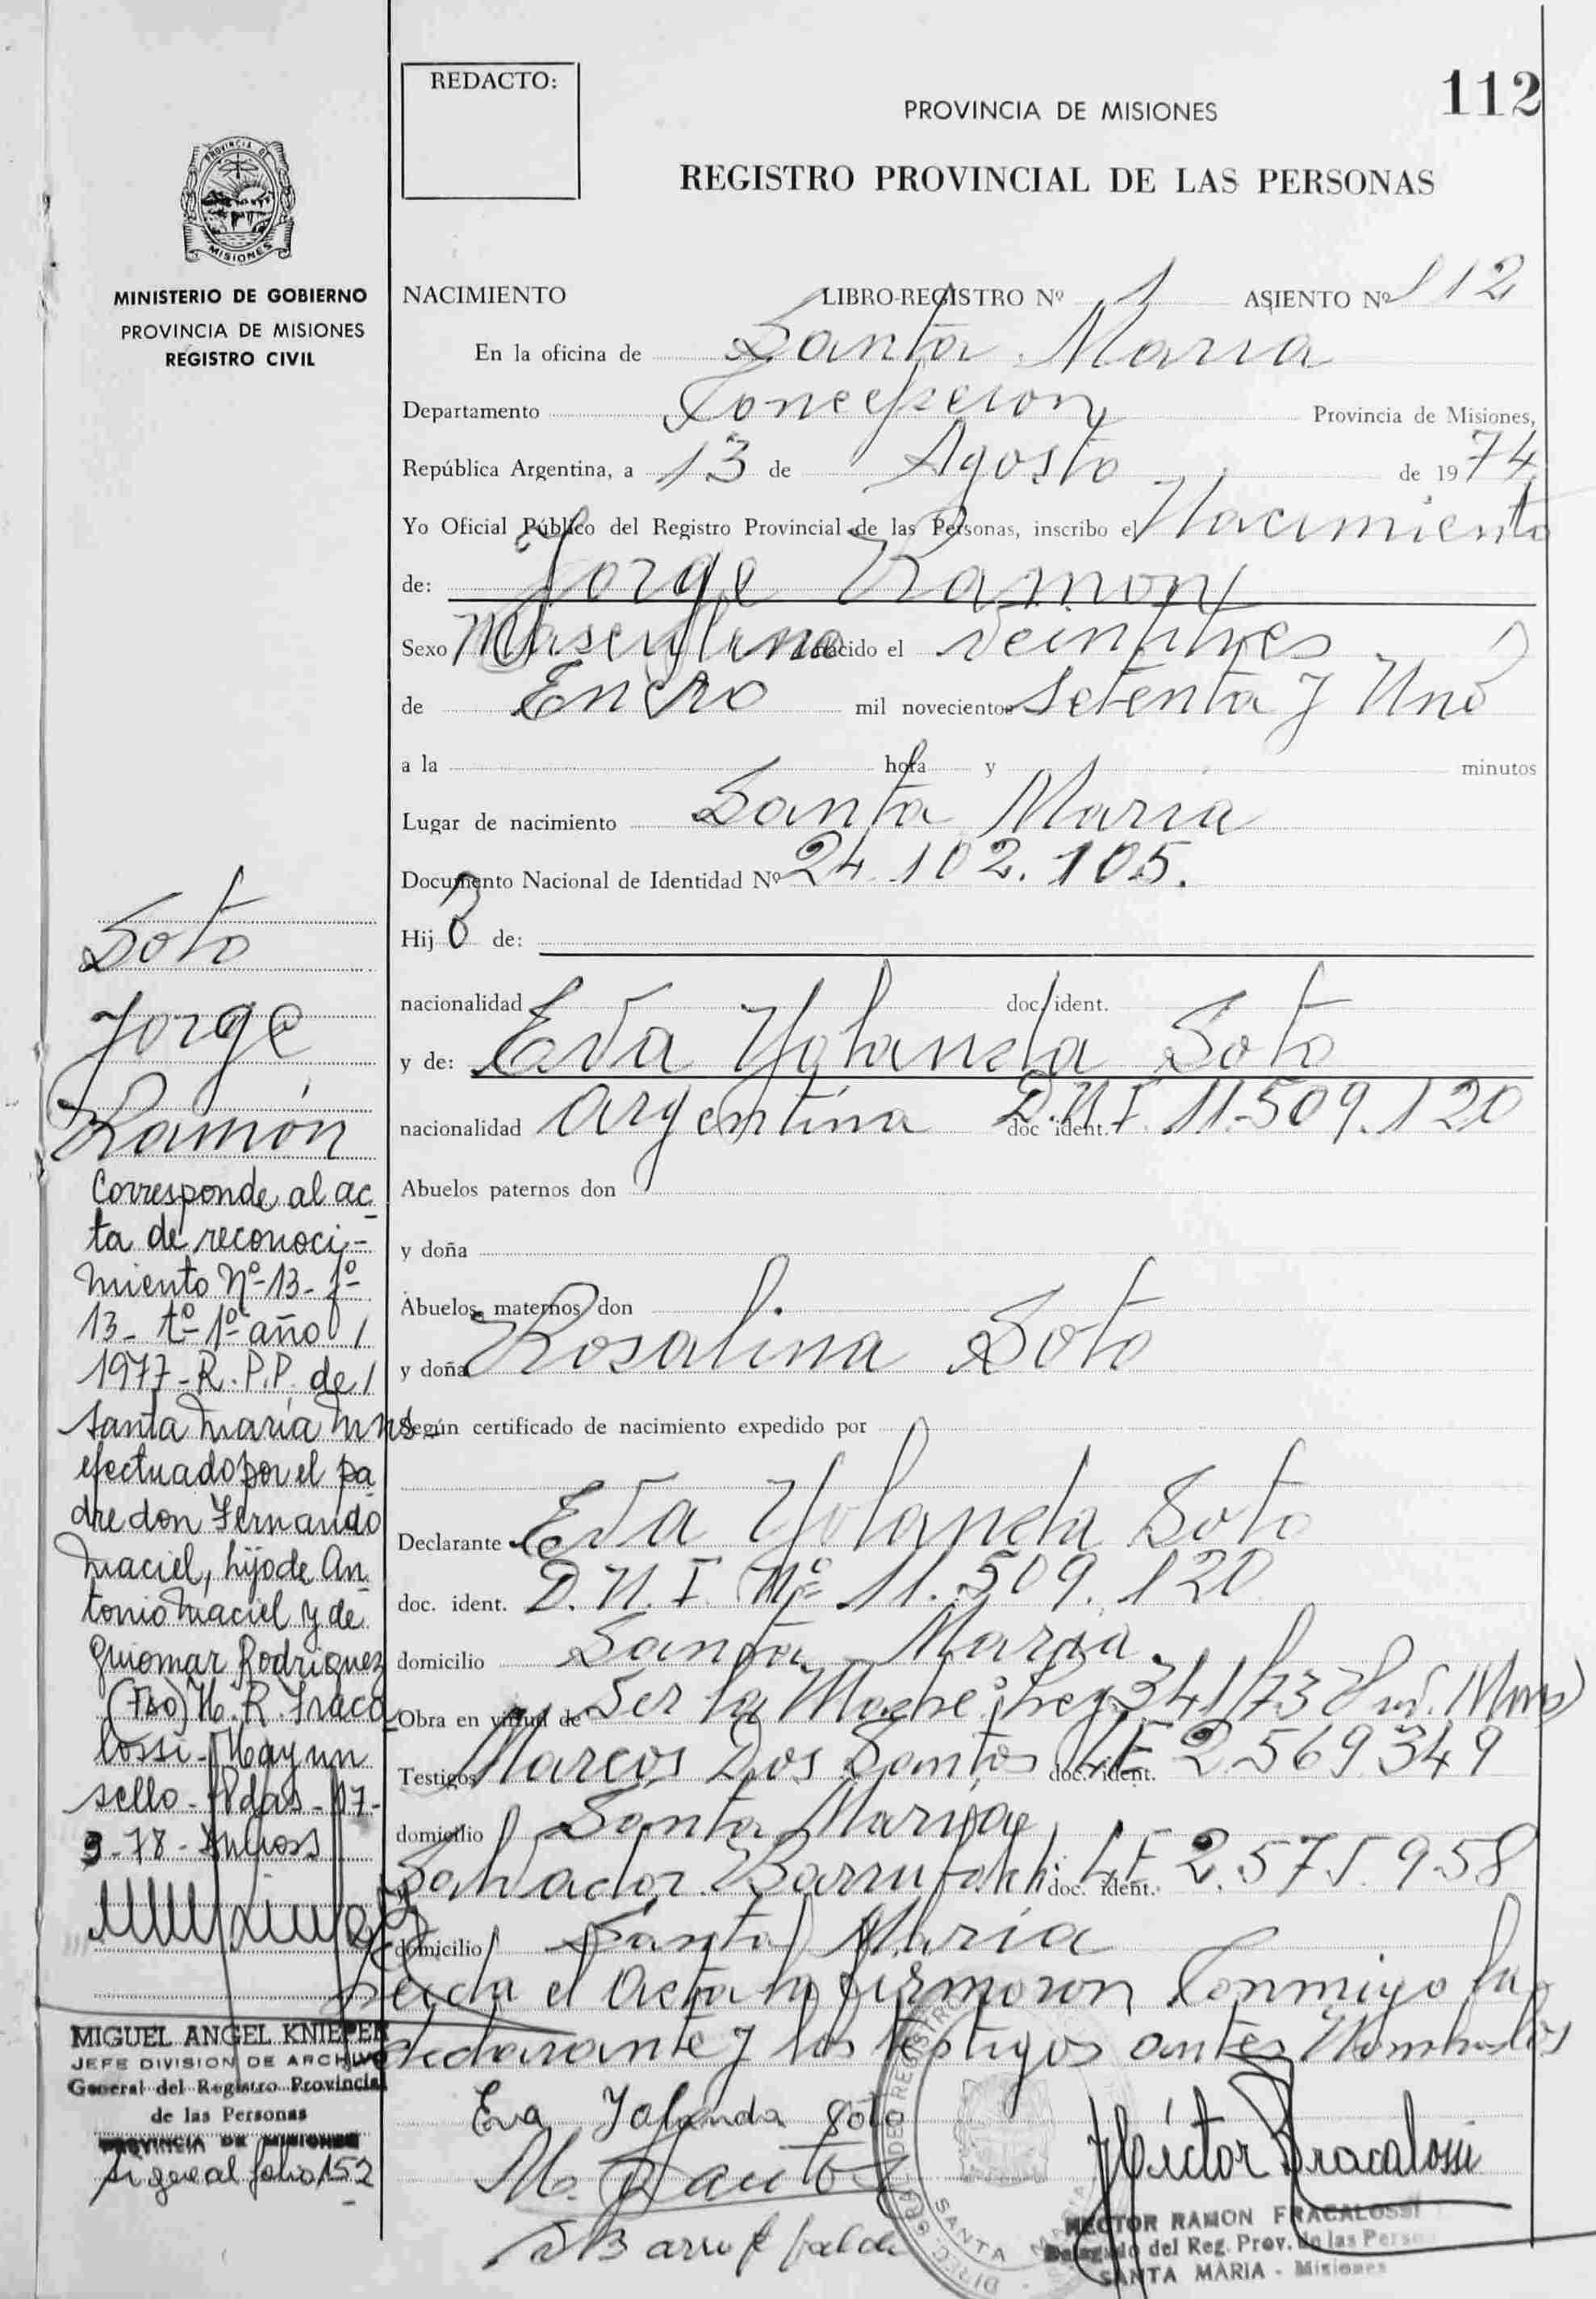 REDACTO:
112
PROVINCIA DE MISIONES
REGISTRO PROVINCIAL DE LAS PERSONAS
PROVINCIA DE
MISIONES
MINISTERIO DE GOBIERNO
PROVINCIA DE MISIONES
REGISTRO CIVIL
NACIMIENTO LIBRO-REGISTRO Nº 1 ASIENTO Nº 112
En la oficina de Santa Maria
Departamento Concepcion Provincia de Misiones,
República Argentina, a 13 de Agosto de 1974
Yo Oficial Público del Registro Provincial de las Personas, inscribo el Nacimiento
de: Jorge Ramon
Sexo Masculino nacido el veintitres
de Enero mil novecientos Setenta y Uno
a la hora y minutos
Lugar de nacimiento Santa Maria
Documento Nacional de Identidad Nº 24.102.105.
Hijo de:
nacionalidad doc. ident.
y de: Eva Yolanda Soto
nacionalidad argentina doc ident. D.N.I. 11.509.120
Abuelos paternos don
y doña
Abuelos maternos don
y doña Rosalina Soto
Según certificado de nacimiento expedido por
Declarante Eva Yolanda Soto
doc. ident. D.N.I. Nº 11.509.120
domicilio Santa Maria.
Obra en virtud de Ser la Madre: Ley 341/73
Testigos Marcos Dos Santos doc. ident. LE 2.569.349
domicilio Santa Maria
Salvador Barrufaldi: doc. ident. LE 2.575.958
domicilio Santa Maria
Leida el Acta la firmaron Conmigo la
declarante y los testigos antes Nombrados
Eva Yolanda Soto
M. D Santos
S Barrufaldi
Héctor Fracalossi
HECTOR RAMON FRACALOSSI
Delegado del Reg. Prov. de las Perso
SANTA MARIA - Misiones
SANTA MARIA
Soto
Jorge
Ramón
Corresponde al ac
ta de reconoci-
miento Nº-13- fº
13- tº- 1º- año
1977- R.P.P. de
Santa María Mns-
efectuado por el pa
dre don Fernando
Maciel, hijo de An
tonio Maciel y de
Guiomar Rodriguez
(Fdo) H. R. Fraca
lossi- Hay un
sello- Pdas- 17-
3-78-
MIGUEL ANGEL KNIEPER
JEFE DIVISION DE ARCHIVO
General del Registro Provincial
de las Personas
PROVINCIA DE MISIONES
Sigue al folio 152